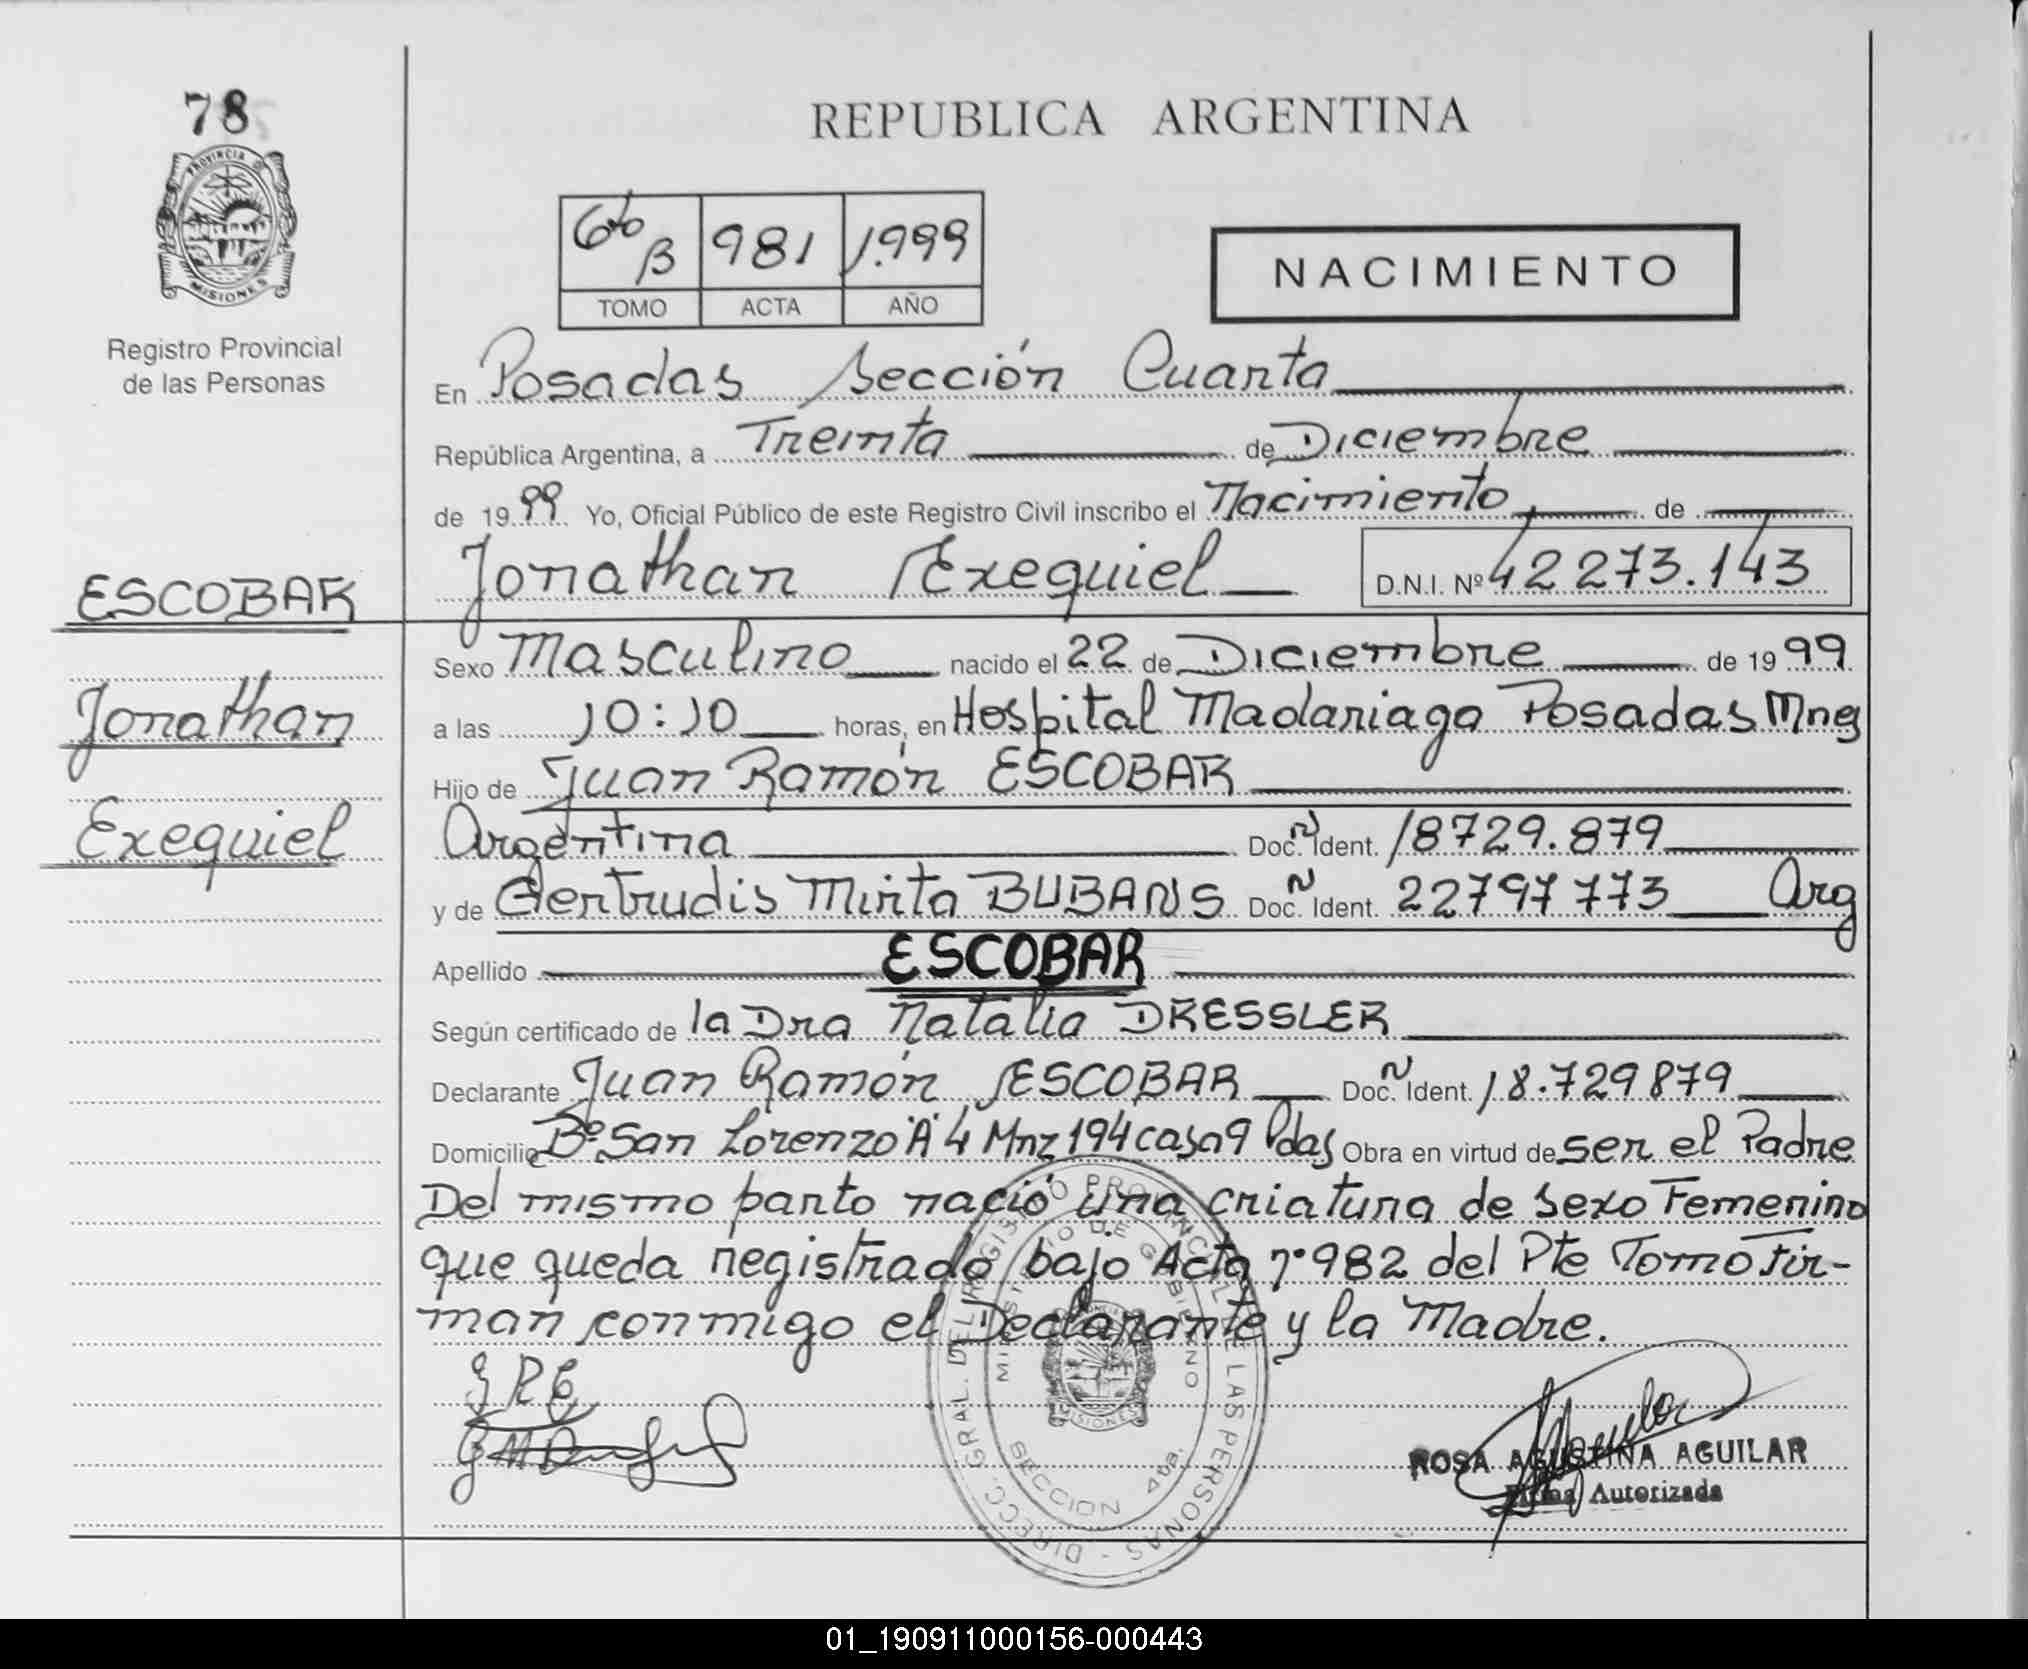 78
PROVINCIA D
MISIONES
Registro Provincial
de las Personas
REPUBLICA ARGENTINA
6to B 981 1.999
TOMO ACTA AÑO
NACIMIENTO
En Posadas Sección Cuarta
República Argentina, a Treinta de Diciembre
de 1999 Yo, Oficial Público de este Registro Civil inscribo el Nacimiento de
Jonathan Exequiel D.N.I. Nº 42 273.143
ESCOBAR
Jonathan
Exequiel
Sexo Masculino nacido el 22 de Diciembre de 1999
a las 10:10 horas, en Hospital Madariaga Posadas Mnes
Hijo de Juan Ramón ESCOBAR
Argentina Doc. Ident. 18729.879
y de Gertrudis Mirta BUBANS Doc. Ident. 22797773 Arg
Apellido ESCOBAR
Según certificado de la Dra Natalia DRESSLER
Declarante Juan Ramón ESCOBAR Doc. Ident. 18.729879
Domicilio Bº San Lorenzo "A" 4 Mnz 194 casa 9 Pdas Obra en virtud de ser el Padre
Del mismo parto nació una criatura de sexo Femenino
que queda registrado bajo Acta nº 982 del Pte Tomo Fir-
man conmigo el Declarante y la Madre.
J R E
DIRECC. GRAL. DEL REGISTRO PROVINCIAL DE LAS PERSONAS -
MINISTERIO DE GOBIERNO
SECCION 4ta.
MISIONES
ROSA AGUSTINA AGUILAR
Firma Autorizada
01_190911000156-000443